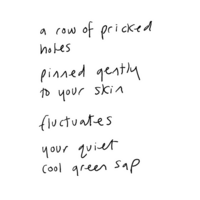 a row of pricked
holes
pinned gently
to your skin
fluctuates
your quiet
cool green sap